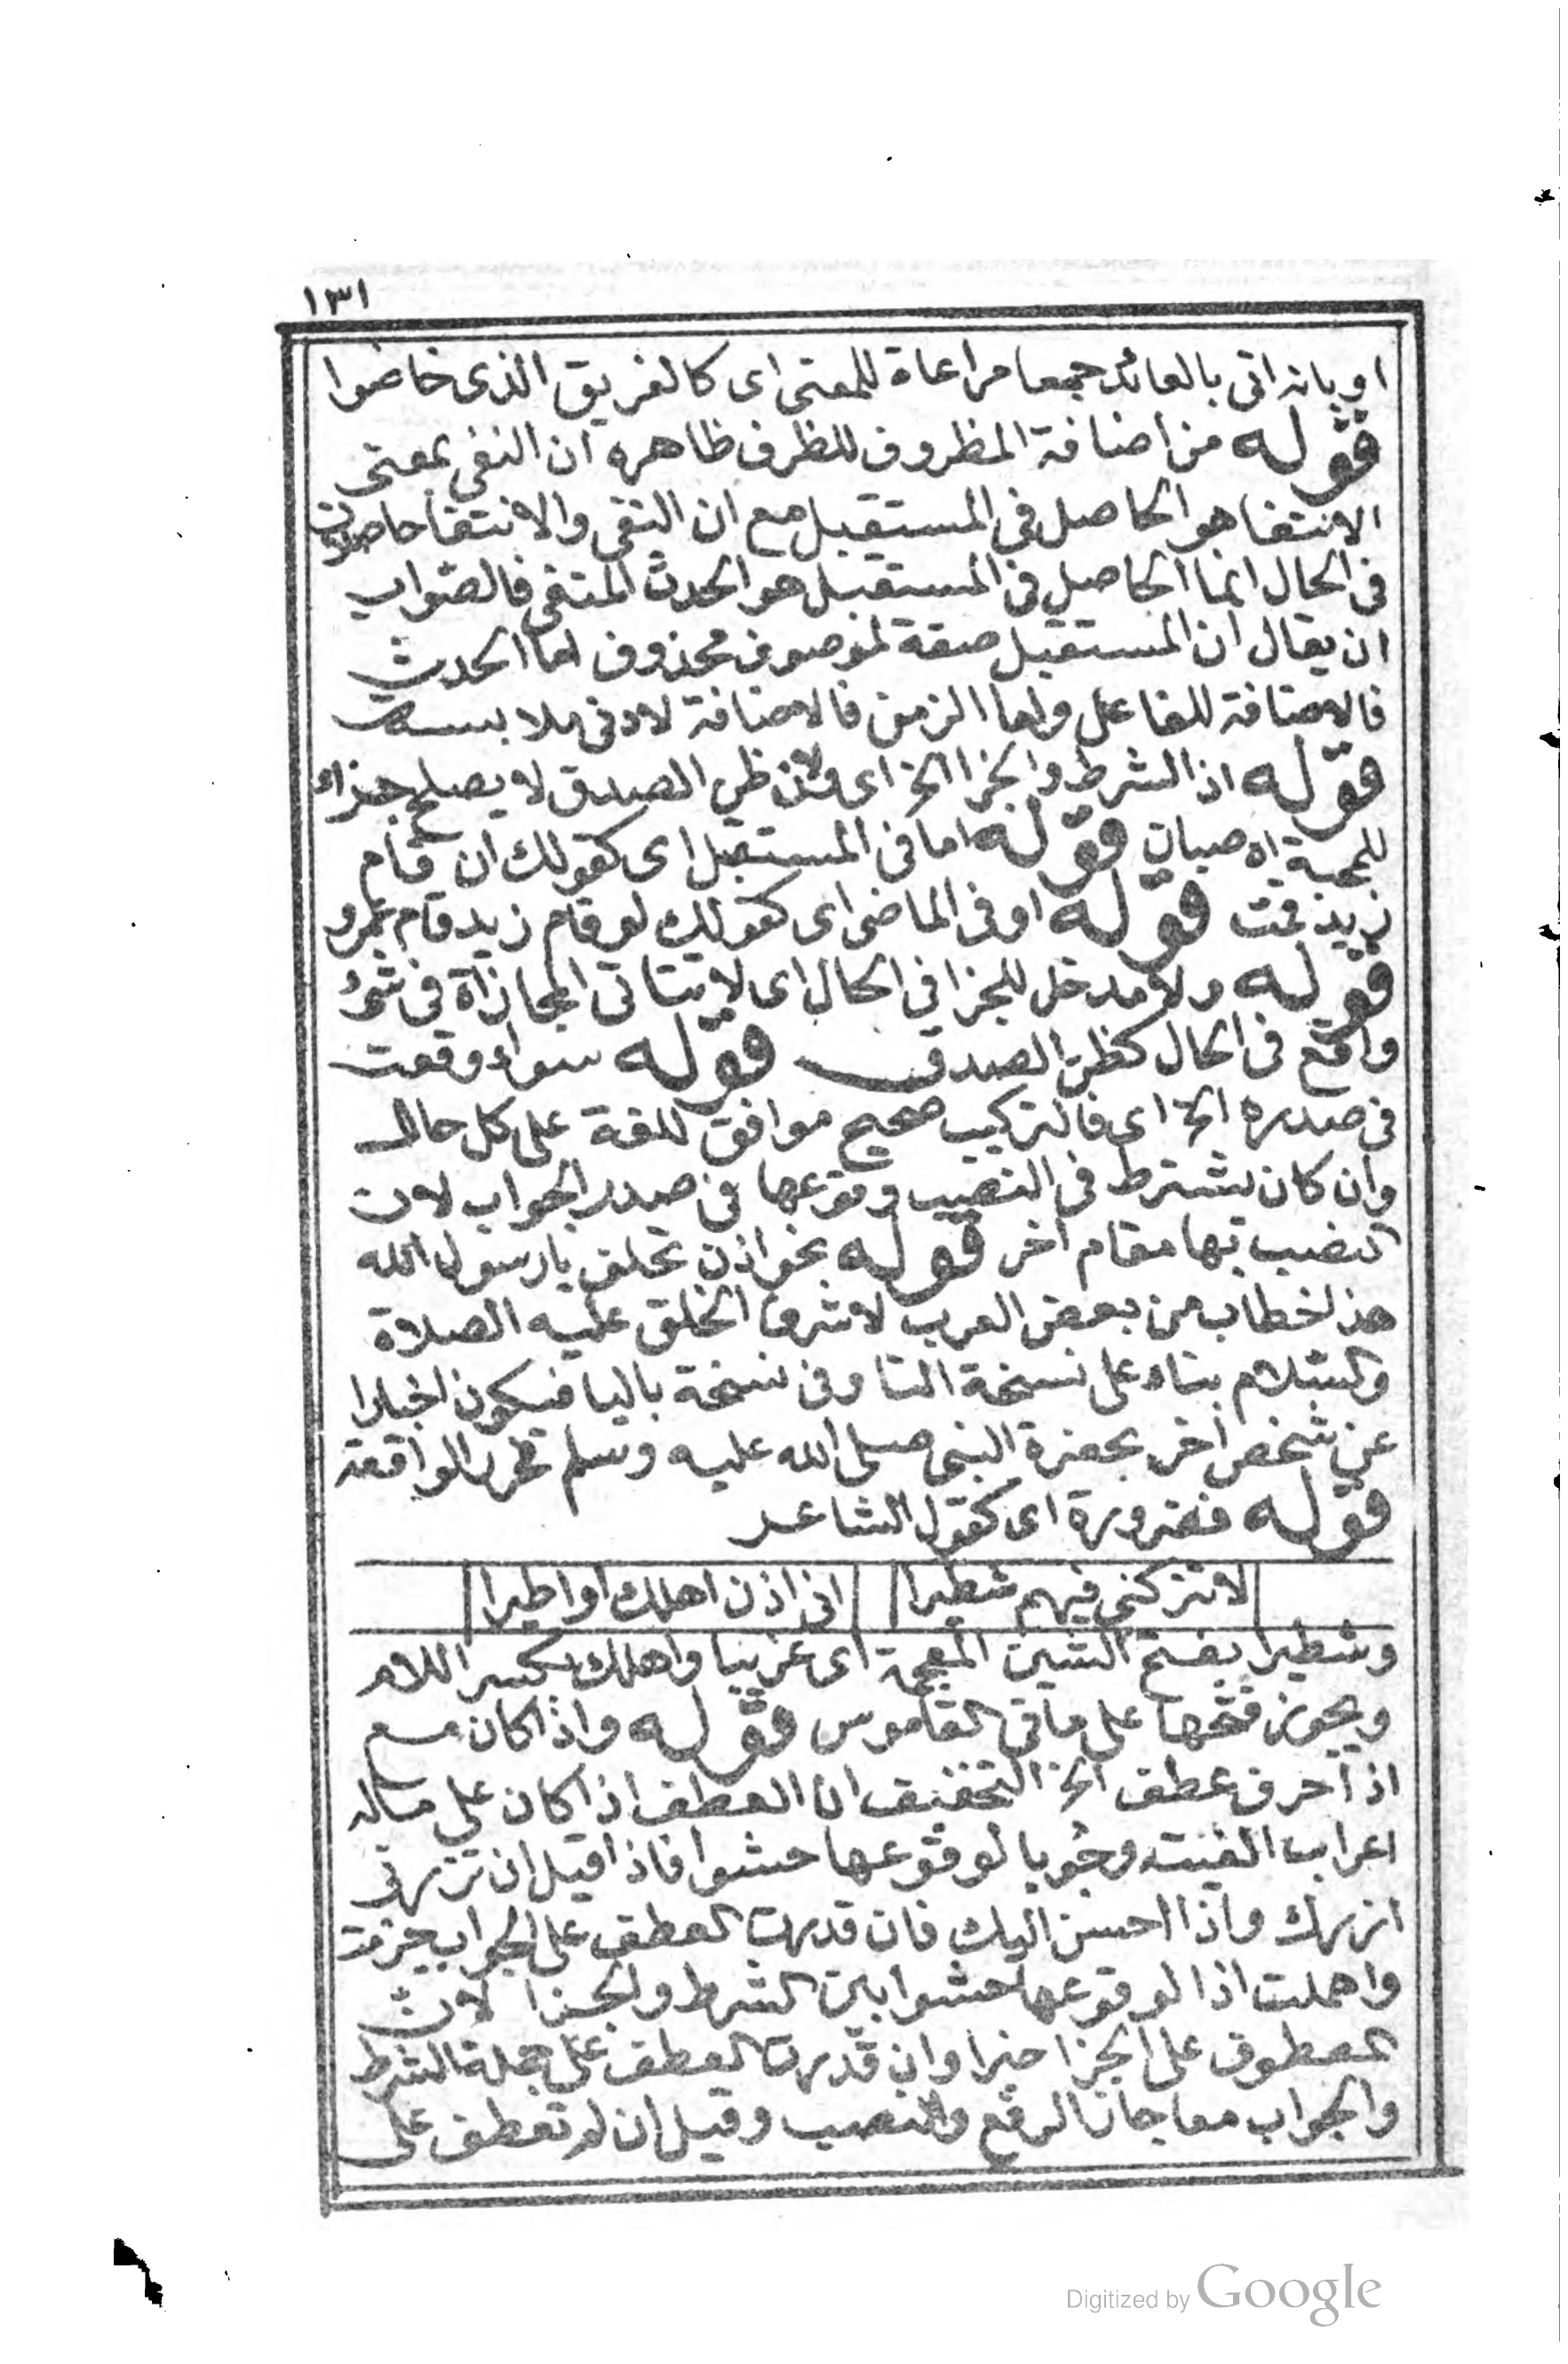 ١٣١
او بانه اتى بالعائد جمعا مراعاة للمعنى اى كالفريق الذى خاضوا
قوله من اضافة المظروف للظرف ظاهره ان النفى بمعنى
الانتفا هو الحاصل فى المستقبل مع ان النفى والانتفا حاصلان
فى الحال انما الحاصل فى المستقبل هو الحدث المنفى فالصواب
ان يقال ان المستقبل صفة لموصوف محذوف اما الحدث
فالاضافة للفاعل واما الزمن فالاضافة لادنى ملابسة
قوله اذ الشرط والجزا الخ اى ولان ظن الصدق لا يصلح جزاء
للمحبة اه صبان قوله اما فى المستقبل اى كقولك ان قام
زيد قمت قوله او فى الماضى اى كقولك لو قام زيد قام عمرو
قوله ولا مدخل للجزا فى الحال اى لا يتاتى المجازاة فى شئ
واقع فى الحال كظن الصدق قوله سواء وقعت
فى صدره الخ اى فالتركيب صحيح موافق للغة على كل حال
وان كان يشترط فى النصب وقوعها فى صدر الجواب لان
النصب بها مقام اخر قوله نحو اذن تحلف يا رسول الله
هذا خطاب من بعض العرب لاشرف الخلق عليه الصلاة
والسلام بناء على نسخة التا وفى نسخة باليا فيكون اخبارا
عن شخص اخر بحضرة النبى صلى الله عليه وسلم فحرر الواقعة
قوله فضرورة اى كقول الشاعر
لا تتركنى فيهم شطيرا انى اذن اهلك او اطيرا
وشطيرا بفتح الشين المعجمة اى غريبا واهلك بكسر اللام
ويجوز فتحها على ما فى القاموس قوله واذا كان مع
اذا حرف عطف الخ التحقيق ان العطف اذا كان على ماله
اعراب الغيت وجوبا لوقوعها حشوا فاذا قيل ان تزرنى
ازرك واذا احسن اليك فان قدرت العطف على الجواب جزمت
واهملت اذا لوقوعها حشوا بين الشرط والجزا لان
المعطوف على الجزا جزا وان قدرت العطف على جملة الشرط
والجواب معا جاز الرفع والنصب وقيل ان لم تعطف على
Digitized by Google